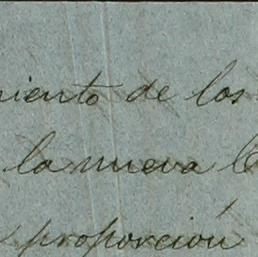 miento de los
la nueva
proporción